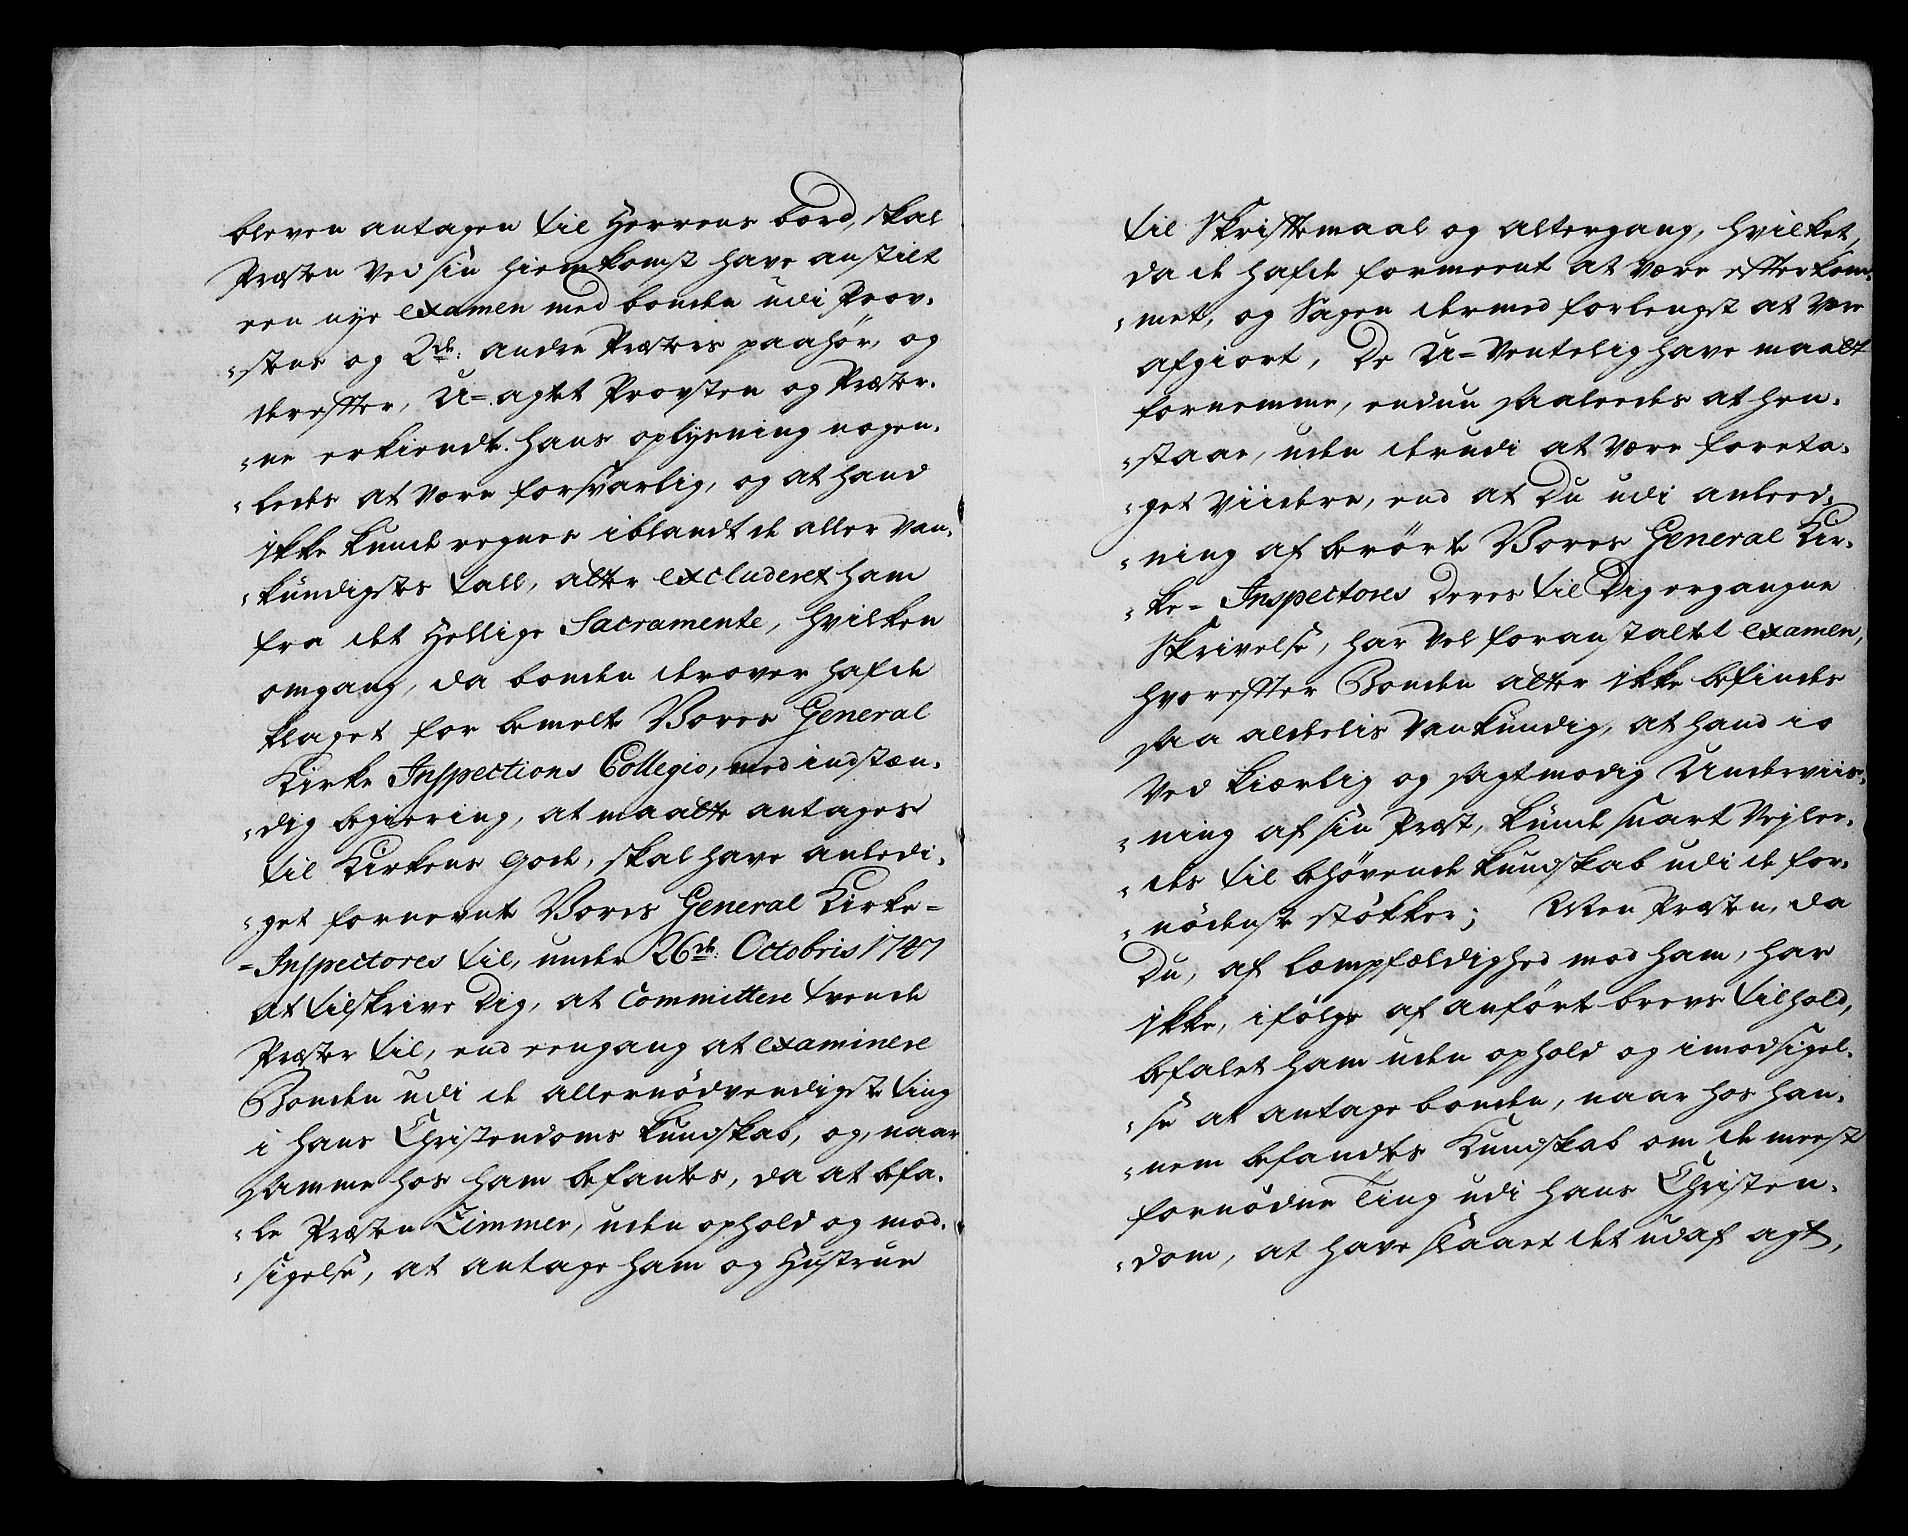 bleven antagen til Herrens bord, skal
Præsten ved sin hiemkomst have anstilt
een nye examen med bonden udi Prov-
stens og 2de: andre Præsters paahør, og
derefter, U-agtet Provsten og Præster-
ne erkiendte hans oplysning nogen-
ledes at være forsvarlig, og at hand
ikke kunde regnes iblandt de aller van-
kundigstes tall, atter excluderet ham
fra det Hellige Sacramente, hvilken
omgang, da bonden derover hafde
klaget for bemelte Vores General
Kirke Inspections Collegio, med indstæn-
dig begiering, at maatte antages
til Kirkens Gode, skal have anledi-
get fornevnte Vores General Kirke-
-Inspectores til, under 26de: Octobris 1747
at tilskrive Dig, at committere tvende
Præster til, end eengang at examinere
Bonden udi de allernødvendigste ting
i hans Christendoms kundskab, og, naar
samme hos ham befantes, da at befa-
le Præsten Zimmer, uden ophold og mod-
sigelse, at antage ham og Hustrue
til Skriftemaal og altergang, hvilket,
da de hafde formeent at være efterkom-
met, og Sagen dermed forlengst at være
afgiort, De U-ventelig have maatt
fornemme, endnu saaleedes at hen-
staae, uden derudi at være foreta-
get viidere, end at Du udi anleed-
ning af berørte Vores General Kir-
ke-Inspectores Deres til Dig ergangne
Skrivelse, har vel foranstaltet examen,
hvorefter Bonden atter ikke befindes
saa aldelis vankundig, at hand jo
ved kiærlig og sagtmodig Underviis-
ning af sin Præst, kunde snart vejlee-
des til behøvende kundskab udi de for-
nødenste støkker; Men Præsten, da
Du, af lempfældighed mod ham, har
ikke, ifølge af anførte brevs tilhold,
befalet ham uden ophold og imodsigel-
se at antage bonden, naar hos han-
nem befandtes Kundskab om de meest
fornødne Ting udi hans Christen-
dom, at have slaaet det udaf agt,